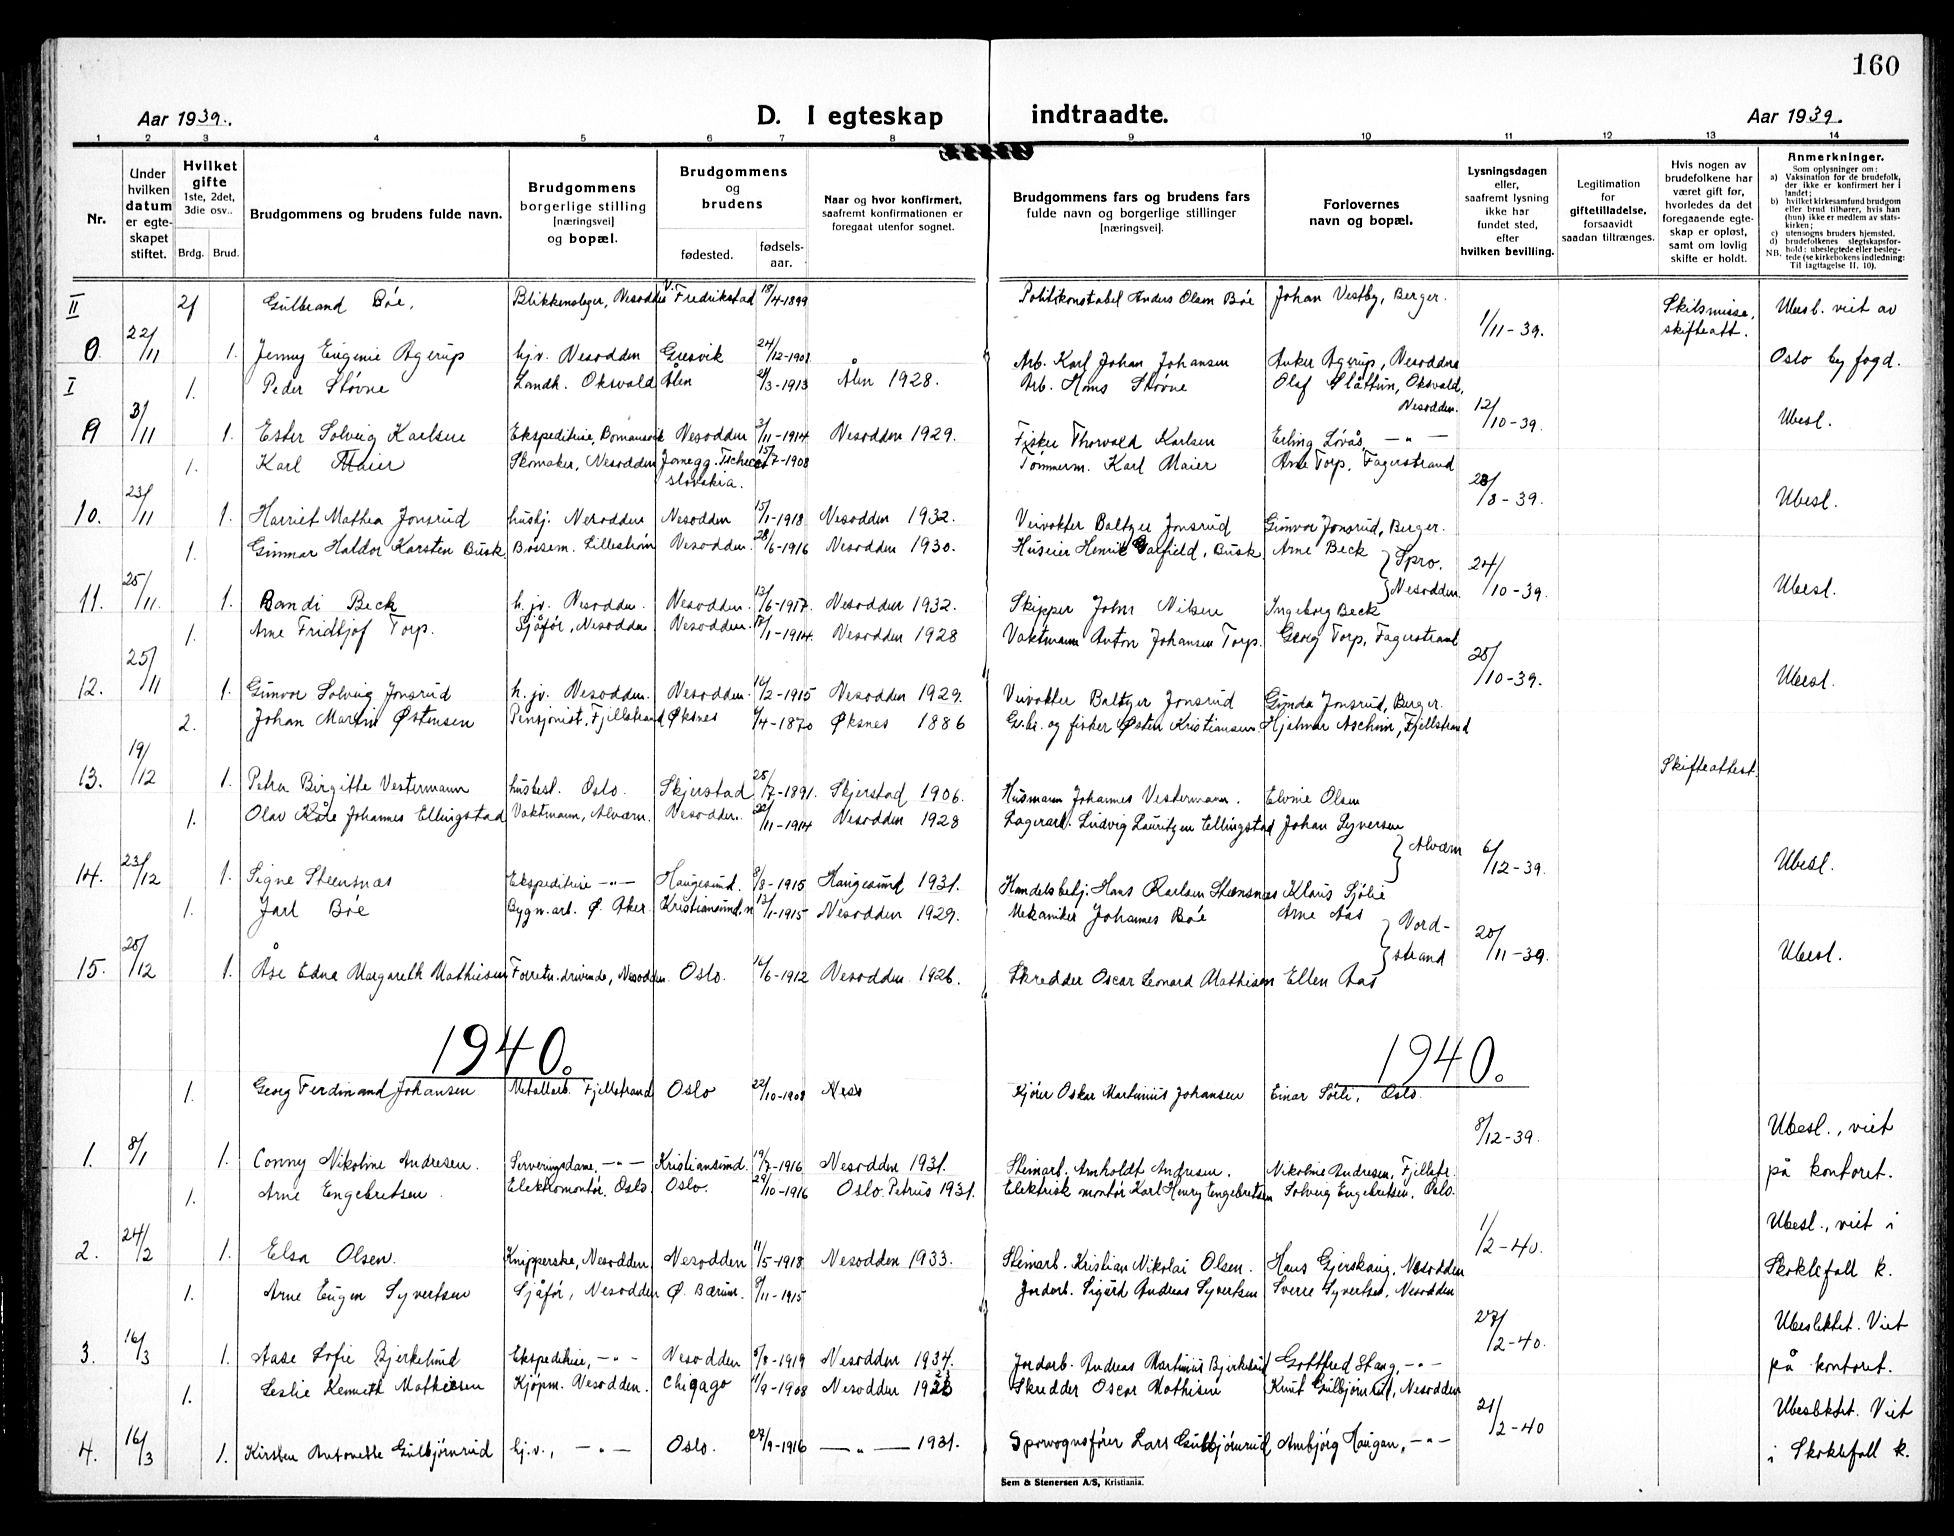 160
Aar 1939. D. I egteskap indtraadte. Aar 1939.
1 2 3 4 5 6 7 8 9 10 11 12 13 14
Nr.
Under hvilken datum er egte-skapet stiftet.
Hvilket gifte 1ste, 2det, 3die osv..
Brdg. Brud.
Brudgommens og brudens fulde navn.
Brudgommens borgerlige stilling [næringsvei] og bopæl.
Brudgommens og brudens
fødested. fødsels-aar.
Naar og hvor konfirmert, saafremt konfirmationen er foregaat utenfor sognet.
Brudgommens fars og brudens fars fulde navn og borgerlige stillinger [næringsvei].
Forlovernes navn og bopæl.
Lysningsdagen eller, saafremt lysning ikke har fundet sted, efter hvilken bevilling.
Legitimation for giftetilladelse, forsaavidt saadan tiltrænges.
Hvis nogen av brudefolkene har været gift før, hvorledes da det foregaaende egte-skap er opløst, samt om lovlig skifte er holdt.
Anmerkninger.
Som oplysninger om:
a) Vaksination for de brudefolk, der ikke er konfirmert her i landet;
b) hvilket kirkesamfund brudgom eller brud tilhører, hvis han (hun) ikke er medlem av stats-kirken;
c) utensogns bruders hjemsted.
d) brudefolkenes slegtskapsfor-hold: ubeslegtede eller besleg-tede (se kirkebokens indledning: Til iagttagelse II. 10).
NB.
II 2f Gulbrand Bøe. Blikkenslager, Nesodden V. Fredrikstad 15/4-1899 Politikonstabel Anders Olsen Bøe Johan Vestby, Berger. 1/11-39. Skilsmisse, skifteatt. Ubesl. viet av
8. 22/11 1. Jenny Eugenie Agerup hj.v. Nesodden Gresvik 24/12-1901 Arb. Karl Johan Johansen Anker Agerup, Nesodden Oslo byfogd.
I 1. Peder Støvne Landh. Oksvald Ålen 21/3-1913 Ålen 1928. Arb. Hans Støvne Olaf Slåttun, Oksval, Nesodden. 12/10-39. Ubesl.
9 3/11 1. Ester Solveig Karlsen Ekspeditrise, Bomansvik Nesodden 3/11-1914 Nesodden 1929. Fisker Thorvald Karlsen Erling Løvås, — " —
1. Karl Maier Skomaker, Nesodden Jonegg. Tschecoslovakia. 15/7-1908 Tømmerm. Karl Maier Arne Torp, Fagerstrand 28/8-39. Ubesl.
10. 23/11 1. Harriet Mathea Jonsrud husbj. Nesodden Nesodden 15/1-1918 Nesodden 1932. Veivokter Baltzer Jonsrud Gunvor Jonsrud, Berger.
1. Gunnar Haldor Karsten Busk Bossem. Lillestrøm Nesodden. 28/6-1916 Nesodden 1930. Huseier Henrik Garfield, Busk Arne Beck } Spro. Nesodden 24/10-39. Ubesl.
11. 25/11. 1. Bandi Beck h.jv. Nesodden. Nesodden. 13/6-1917. Nesodden 1932. Skipper John Nilsen Ingeborg Beck
1. Arne Fridtjof Torp. Sjåfør, Nesodden Nesodden. 17/1-1914. Nesodden 1928 Vaktmann Anton Johansen Torp. Georg Torp, Fagerstrand 25/10-39. Ubesl.
12. 25/11 1. Gunvor Solveig Jonsrud h.jv. Nesodden. Nesodden. 14/2-1915 Nesodden 1929. Veivokter Baltzer Jonsrud Gynda Jonsrud, Berger.
2. Johan Martin Østensen Pensjonist, Fjellstrand Øksnes 4/4-1870 Øksnes 1886 Gr.br. og fisker Østen Kristiansen. Hjalmar Aschim, Fjellstrand Skifteattest.
13. 19/12 1. Petra Birgitte Vestermann husbest. Oslo. Skjerstad 25/7-1891. Skjerstad 1906. Husmann Johannes Vestermann. Elvine Olsen
1. Olav Kåre Johannes Ellingstad Vaktmann, Alværn. Nesodden. 22/11-1914 Nesodden 1928 Lagerarb. Ludvig Lauritzen Ellingstad Johan Syversen } Alværn 6/12-39. Ubesl.
14. 23/12 1. Signe Steensnæs Ekspeditrise — " — Haugesund. 9/8-1915 Haugesund 1931. Handelsbetj. Hans Karlsen Steensnæs Klaus Sjølie
1. Jarl Bøe Bygn.arb. Ø. Aker. Kristiansund. n 13/1-1915 Nesodden 1929. Mekaniker Johannes Bøe Arne Aas } Nordstrand 20/11-39. Ubesl.
15. 25/12 1. Åse Edna Margareth Mathiesen Forretn.drivende, Nesodden Oslo. 14/6-1912 Nesodden 1926. Skredder Oscar Leonard Mathisen Ellen Aas
1940. 1940.
1. Georg Ferdinand Johansen Metallarb. Fjellstrand Oslo 22/10-1908 Kjører Oskar Martinius Johansen Einar Sørli, Oslo. 8/12-39. Ubesl., viet
1. 8/1 1. Conny Nikoline Andresen. Serveringsdame, — " — Kristiansund. 19/7-1916 Nesodden 1931. Steinarb. Arnholdt Andresen. Nikoline Andresen, Fjellstr. på kontoret.
1. Arne Engebretsen. Elektromontør. Oslo. Oslo. 29/10-1916 Oslo. Petrus 1931. Elektrisk montør Karl Henry Engebretsen Solveig Engebretsen, Oslo. 1/2-40. Ubesl., viet i
2. 24/2 1. Elsa Olsen. Knipperske, Nesodden Nesodden 11/5-1918 Nesodden 1933. Steinarb. Kristian Nikolai Olsen. Hans Gjerskaug, Nesodden Skoklefall k.
1. Arne Eugen Syvertsen Sjåfør, Nesodden Ø. Bærum. 9/11-1915 Jordarb. Sigurd Andreas Syvertsen Sverre Syvertsen, Nesodden 27/2-40. Ubeslektet. Viet
3. 16/3 1. Aase Sofie Bjerkelund Ekspeditrise, — " — Nesodden 5/8-1919 Nesodden 1934. Jordarb. Andreas Martinius Bjerkelund Gottfred Stang, — " — på kontoret.
1. Leslie Kenneth Mathiesen Kjøpm. Nesodden. Chicago 11/9-1908 Nesodden 1923 Skredder Oscar Mathisen Knut Gulbjørnrud, Nesodden 21/2-40 Ubeslektet. Viet
4. 16/3 1. Kirsten Antonette Gulbjørnrud hj.v., — " — Oslo. 27/9-1916 — " — 1931. Sporvognsfører Lars Gulbjørnrud Arnbjørg Haugan, — " — i Skoklefall k.
Sem & Stenersen A/S, Kristiania.